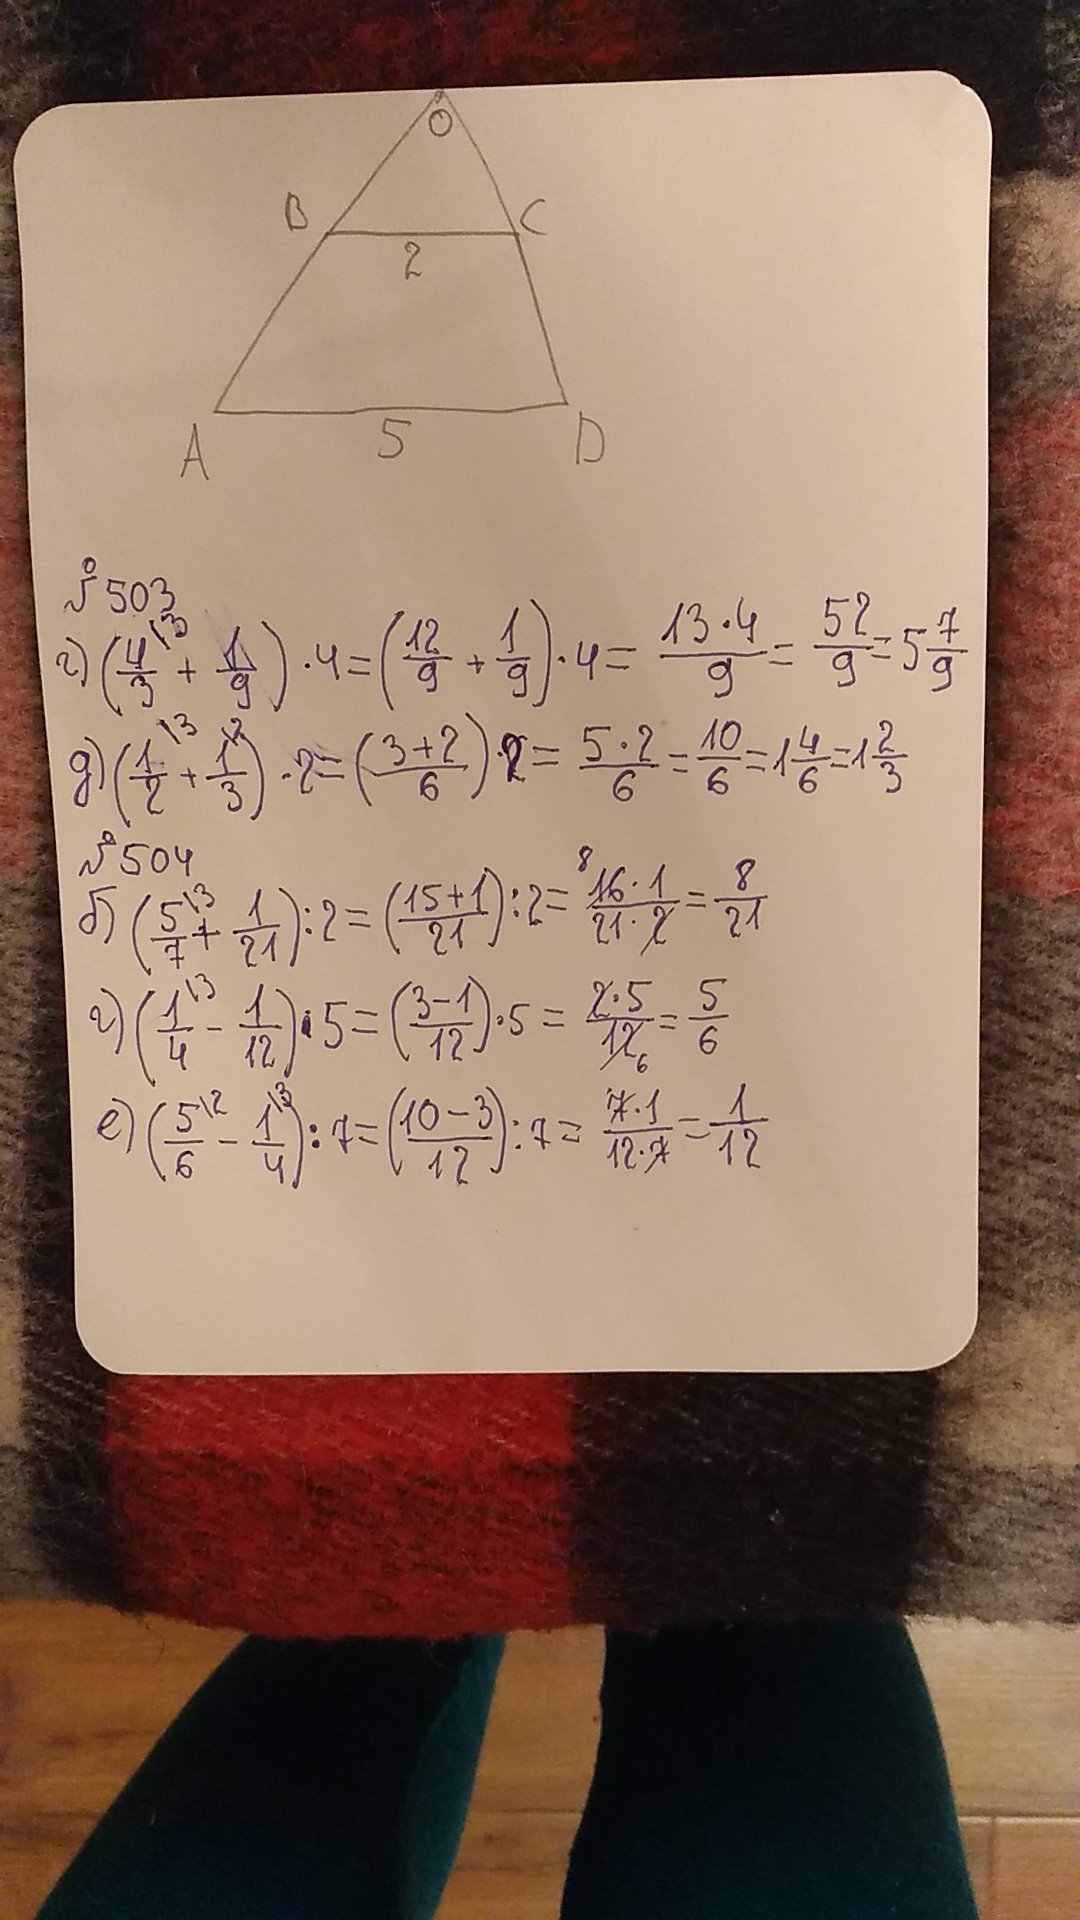 O
B C
2
A 5 D
№ 503
г) (4/3\3 + 1/9) · 4 = (12/9 + 1/9) · 4 = 13·4/9 = 52/9 = 5 7/9
д) (1/2\3 + 1/3\2) · 2 = (3+2/6) · 2 = 5·2/6 = 10/6 = 1 4/6 = 1 2/3
№ 504
б) (5/7\3 + 1/21) : 2 = (15+1/21) : 2 = 8 16·1/21·2 = 8/21
г) (1/4\3 - 1/12) · 5 = (3-1/12) · 5 = 2·5/12 6 = 5/6
е) (5/6\2 - 1/4\3) : 7 = (10-3/12) : 7 = 7·1/12·7 = 1/12